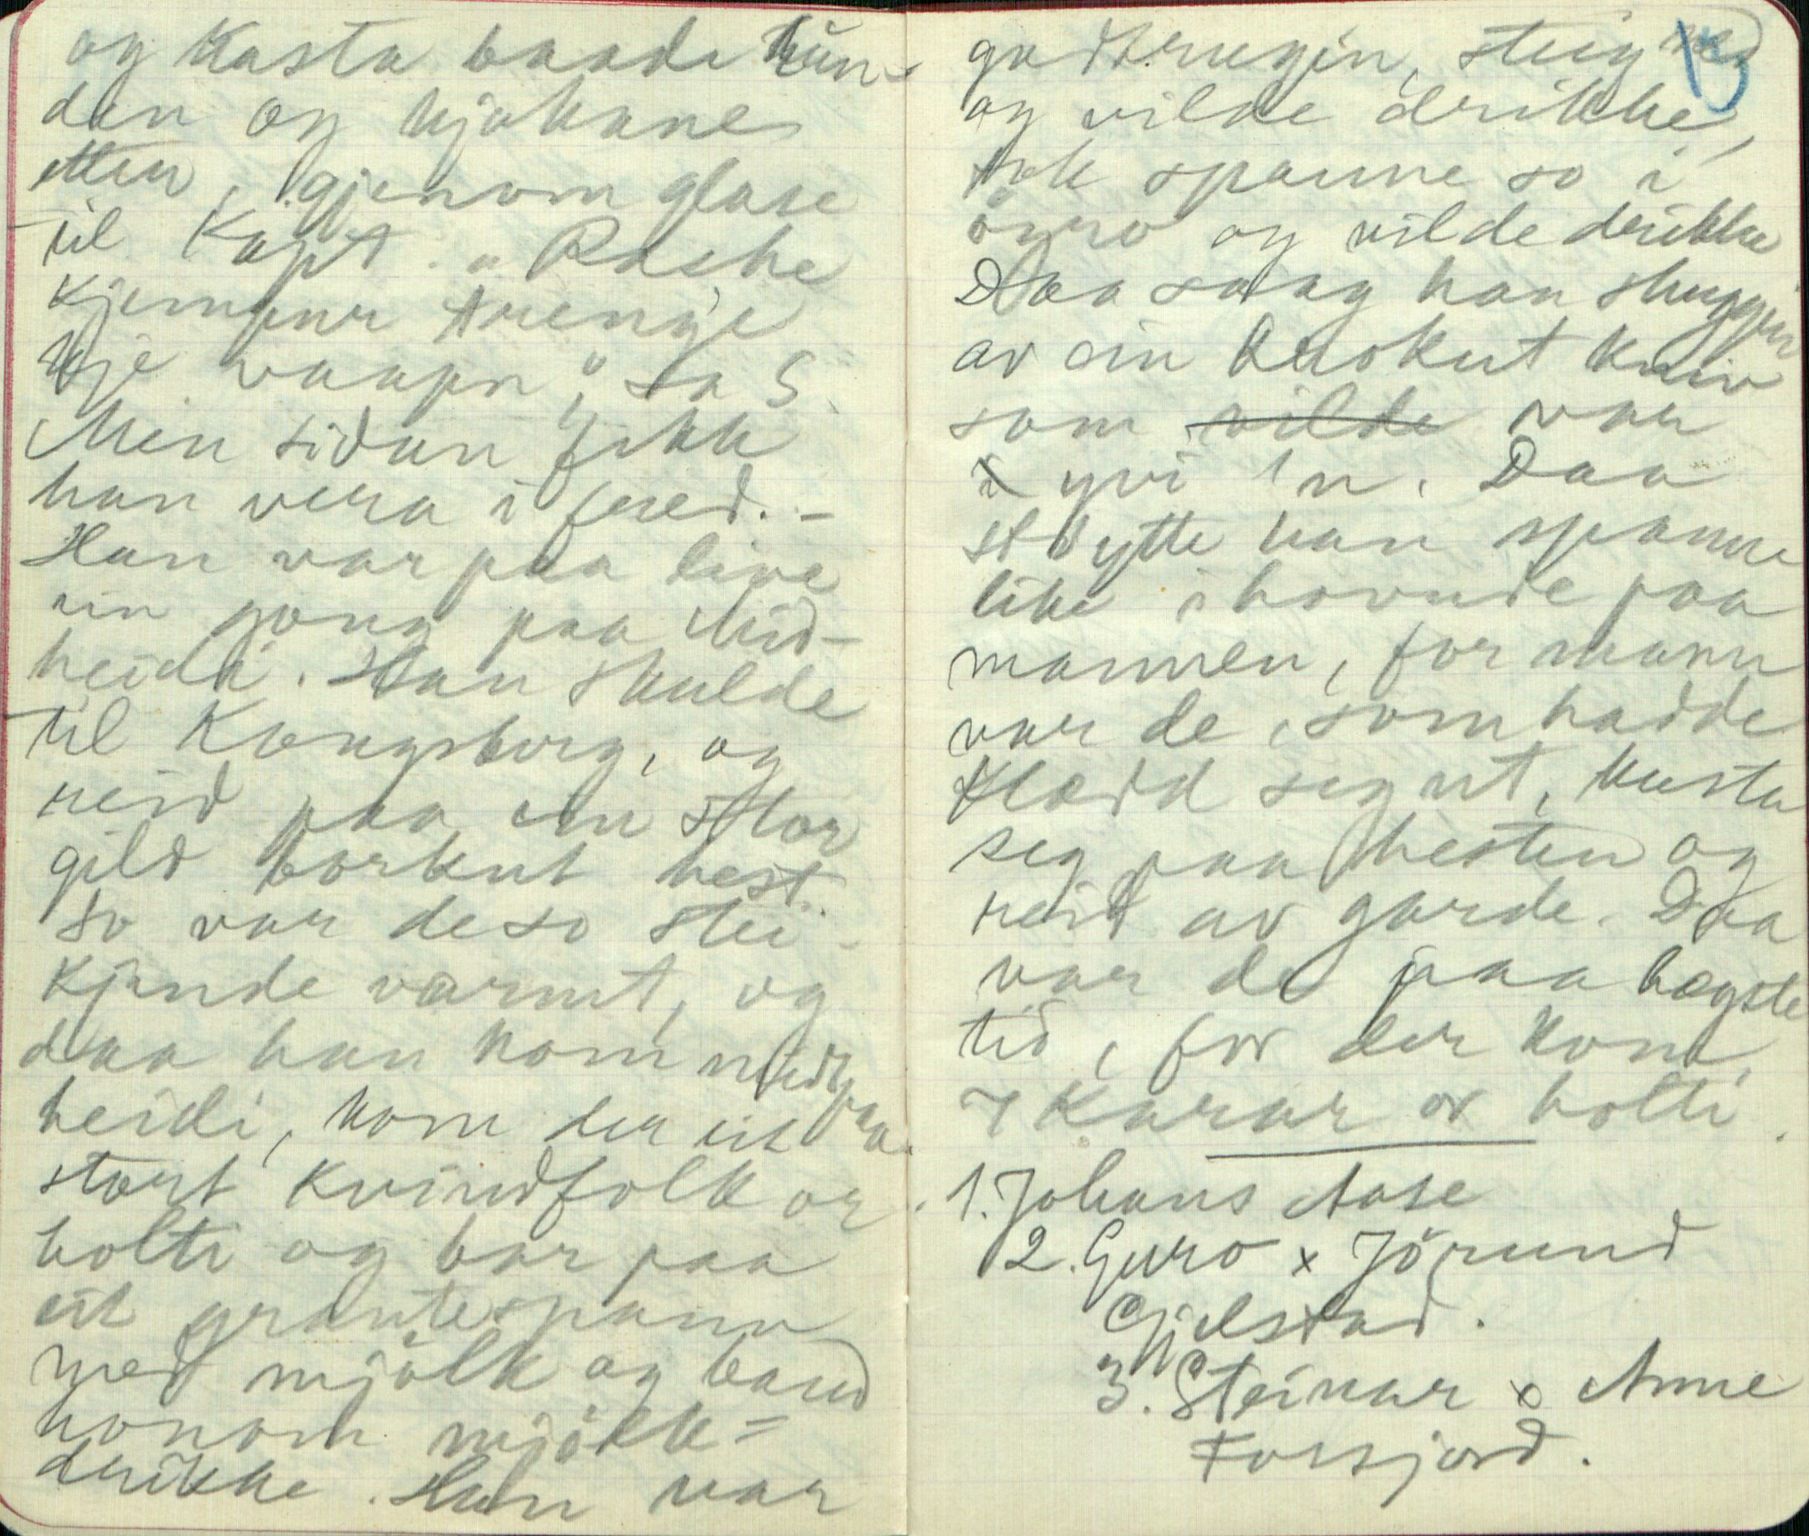 og kasta baade hun-
den og kjøkane
etter, gjenom glase
til Kapt. "Raske
kjempur trenge
kje vaapn", sa S.
Men sidan fekk
han vera i fred. -
Han var paa live
ein gong paa Mid-
heidi. Han skulde
til Kongsberg, og
reid paa ein stor
gild borkut hest.
So var de so stei-
kjande varmt, og
daa han kom midt paa
heidi, kom der eit
stort kvindfolk or
holti og bar paa
eit grautespann
med mjölk og baud
honom mjölk-
drikke. Han var
godtrugin, steig ned
og vilde drikke,
tok spanne so i
öyro og vilde drikke
Daa saag han skuggin
av ein kaskut kniv
som vilde var
i yvi 'n. Daa
stöytte han spanne
like i hovude paa
mannen, for mann
var de, som hadde
klædd seg ut, kasta
seg paa hesten og
reid av garde. Daa
var de paa høgste
tid, for der kom
7 karar or holti.
1. Johans Aase
2. Guro x Jörund
Gjelstad.
3. Steinar x Anne
Forsjord.